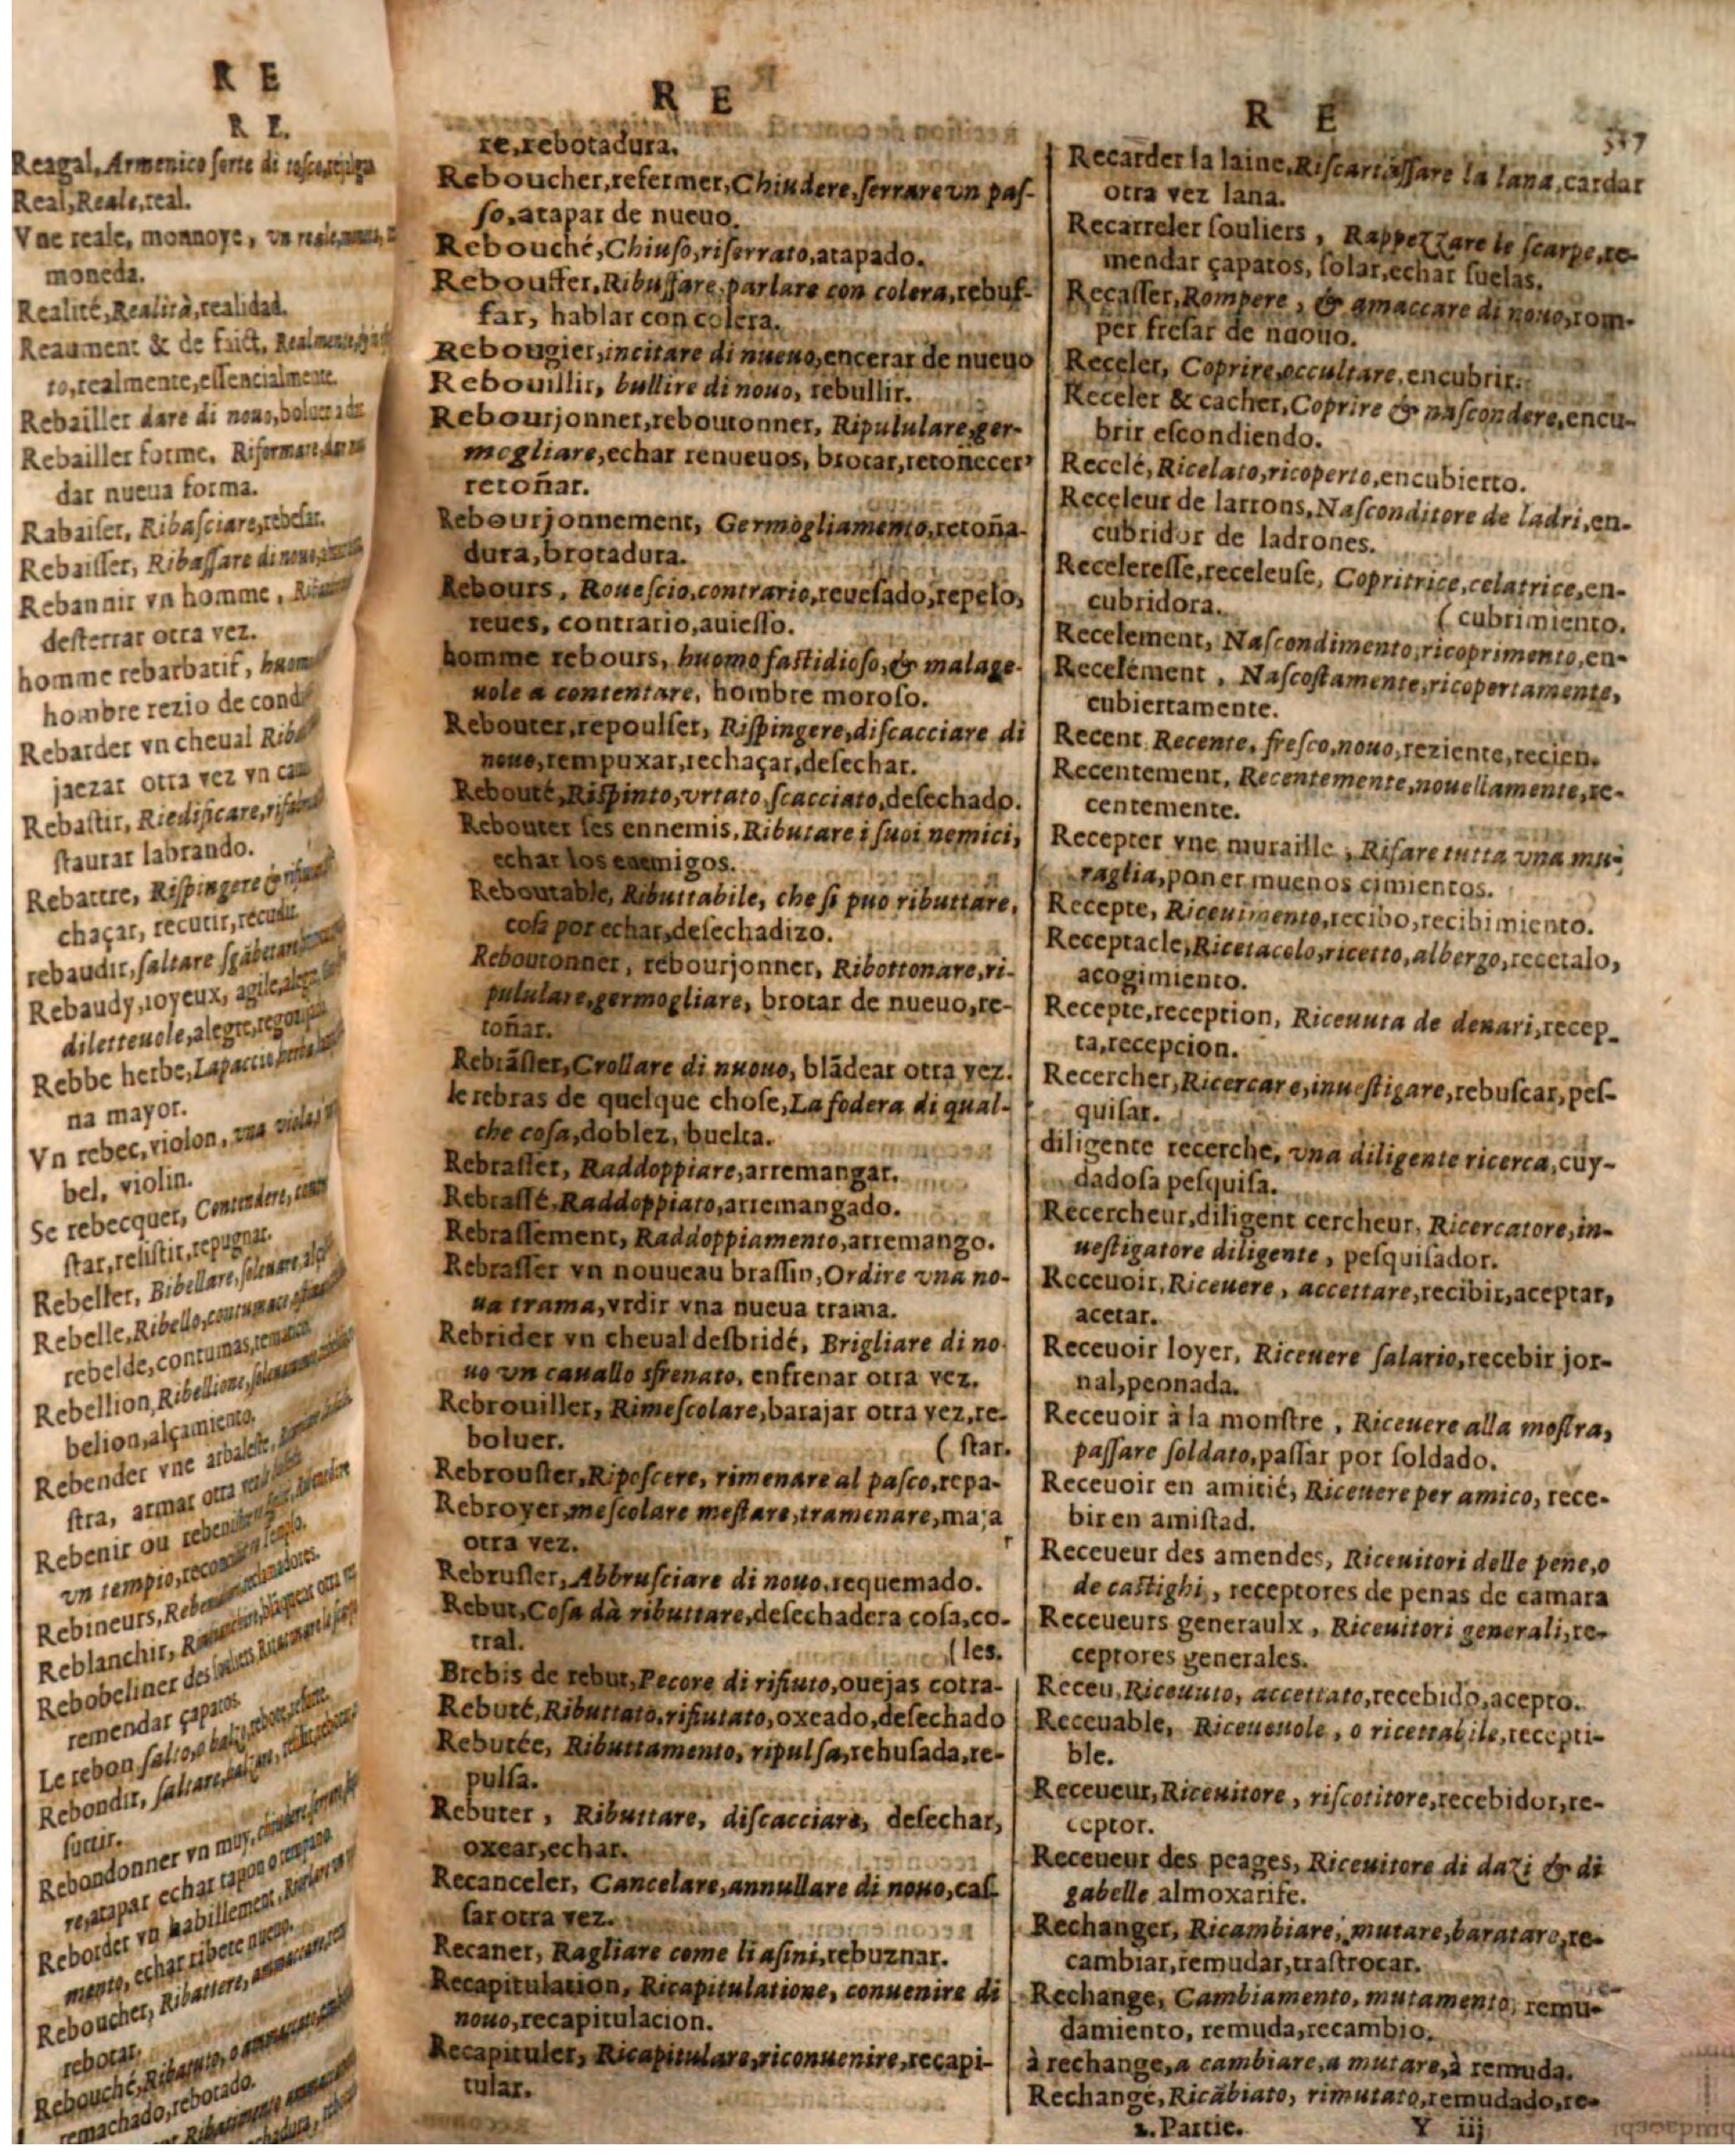 R E
R E.
Reagal, Armenico sorte di
Real, Reale, real.
Vne reale, monnoye, vn reale,
moneda.
Realité, Realità, realidad.
Reaument & de faict, Realmente,
to, realmente, essencialmente.
Rebailler dare di nouo, boluer a dar
Rebailler forme, Riformare,
dar nueua forma.
Rabaiser, Ribasciare, rebesar.
Rebaisser, Ribassare di nouo,
Rebannir vn homme,
desterrar otra vez.
homme rebarbatif,
hombre rezio de
Rebarder vn cheual
jaezar otra vez vn
Rebastir, Riedificare,
staurar labrando.
Rebattre, Rispingere &
chaçar, recutir, recudir.
rebaudir, saltare
Rebaudy, ioyeux, agile,
diletteuole, alegre,
Rebbe herbe, Lapaccio
na mayor.
Vn rebec, violon, vna viola,
bel, violin.
Se rebecquer, Contendere,
star, resistir, repugnar.
Rebeller, Ribellare,
Rebelle, Ribello,
rebelde, contumas,
Rebellion, Ribellione,
belion, alçamiento.
Rebender vne arbaleste,
stra, armar otra
Rebenir ou
vn tempio,
Rebineurs,
Reblanchir,
Rebobeliner des
remendar çapatos.
Le rebon salto,
Rebondir, saltare,
surtir.
Rebondonner vn muy,
re, atapar echar tapon o
Reborder vn habillement,
mento, echar ribete nueuo.
Reboucher, Ribattere,
rebotar.
Rebouché, Ribatuto, o
remachado, rebotado.
R E
re, rebotadura.
Reboucher, refermer, Chiudere, serrare vn pas-
so, atapar de nueuo.
Rebouché, Chiuso, riserrato, atapado.
Rebouffer, Ribuffare, parlare con colera, rebuf-
far, hablar con colera.
Rebougier, incitare di nueuo, encerar de nueuo
Rebouillir, bullire di nouo, rebullir.
Rebourjonner, reboutonner, Ripululare, ger-
mogliare, echar renueuos, brotar, retoñecer,
retoñar.
Rebourjonnement, Germogliamento, retoña-
dura, brotadura.
Rebours, Rouescio, contrario, reuesado, repelo,
reues, contrario, auiesso.
homme rebours, huomo fastidioso, & malage-
uole a contentare, hombre moroso.
Rebouter, repoulser, Rispingere, discacciare di
nouo, rempuxar, rechaçar, desechar.
Rebouté, Rispinto, vrtato, scacciato, desechado.
Rebouter ses ennemis,Ributare i suoi nemici,
echar los enemigos.
Reboutable, Ributtabile, che si puo ributtare,
cosa por echar, desechadizo.
Reboutonner, rebourjonner, Ribottonare, ri-
pululare, germogliare, brotar de nueuo, re-
toñar.
Rebrãsler, Crollare di nuouo, blãdear otra vez.
le rebras de quelque chose, La fodera di qual-
che cosa, doblez, buelta.
Rebrasser, Raddoppiare, arremangar.
Rebrassé, Raddoppiato, arremangado.
Rebrassement, Raddoppiamento, arremango.
Rebrasser vn nouueau brassin, Ordire vna no-
ua trama, vrdir vna nueua trama.
Rebrider vn cheual desbridé, Brigliare di no-
uo vn cauallo sfrenato, enfrenar otra vez.
Rebrouiller, Rimescolare, barajar otra vez, re-
boluer. ( star.
Rebrouster, Ripescere, rimenare al pasco, repa-
Rebroyer, mescolare mestare, tramenare, maja
otra vez. r
Rebrusler, Abbrusciare di nouo, requemado.
Rebut, Cosa dà ributtare, desechadera cosa, co-
tral. ( les.
Brebis de rebut, Pecore di rifiuto, ouejas cotra-
Rebuté, Ributtato, rifiutato, oxeado, desechado
Rebutée, Ributtamento, ripulsa, rehusada, re-
pulsa.
Rebuter, Ributtare, discacciare, desechar,
oxear, echar.
Recanceler, Cancelare, annullare di nouo, cas-
sar otra vez.
Recaner, Ragliare come li asini, rebuznar.
Recapitulation, Ricapitulatione, conuenire di
nouo, recapitulacion.
Recapituler, Ricapitulare, riconuenire, recapi-
tular.
R E
Recarder la laine, la lana, cardar
otra vez lana.
Recarreler souliers, Rappezzare le scarpe, re-
mendar çapatos, solar, echar suelas.
Recasser, Rompere, & amaccare di nouo, rom-
per fresar de nuouo.
Receler, Coprire, occultare, encubrir.
Receler & cacher, Coprire & nascondere, encu-
brir escondiendo.
Recelé, Ricelato, ricoperto, encubierto.
Receleur de larrons, Nasconditore de ladri, en-
cubridor de ladrones.
Receleresse, receleuse, Copritrice, celatrice, en-
cubridora. ( cubrimiento.
Recelement, Nascondimento, ricoprimento, en-
Recelément, Nascostamente, ricopertamente,
cubiertamente.
Recent, Recente, fresco, nouo, reziente, recien.
Recentement, Recentemente, nouellamente, re-
centemente.
Recepter vne muraille, Rifare tutta vna mu-
raglia, poner muenos cimientos.
Recepte, Riceuimento, recibo, recibimiento.
Receptacle, Ricetacolo, ricetto, albergo, recetalo,
acogimiento.
Recepte, reception, Riceuuta de denari, recep-
ta, recepcion.
Recercher, Ricercare, inuestigare, rebuscar, pes-
quisar.
diligente recerche, vna diligente ricerca, cuy-
dadosa pesquisa.
Recercheur, diligent cercheur, Ricercatore, in-
uestigatore diligente, pesquisador.
Receuoir, Riceuere, accettare, recibir, aceptar,
acetar.
Receuoir loyer, Riceuere salario, recebir jor-
nal, peonada.
Receuoir à la monstre, Riceuere alla mostra,
passare soldato, passar por soldado.
Receuoir en amitié, Riceuere per amico, rece-
bir en amistad.
Receueur des amendes, Riceuitori delle pene, o
de castighi, receptores de penas de camara
Receueurs generaulx, Riceuitori generali, re-
ceptores generales.
Receu, Riceuuto, accettato, recebido, acepto.
Receuable, Riceueuole, o ricettabile, recepti-
ble.
Receueur, Riceuitore, riscotitore, recebidor, re-
ceptor.
Receueur des peages, Riceuitore di dazi & di
gabelle almoxarife.
Rechanger, Ricambiare, mutare, baratare, re-
cambiar, remudar, trastrocar.
Rechange, Cambiamento, mutamento, remu-
damiento, remuda, recambio.
à rechange, a cambiare, a mutare, à remuda.
Rechangé, Ricãbiato, rimutato, remudado, re-
2. Partie. Y iij